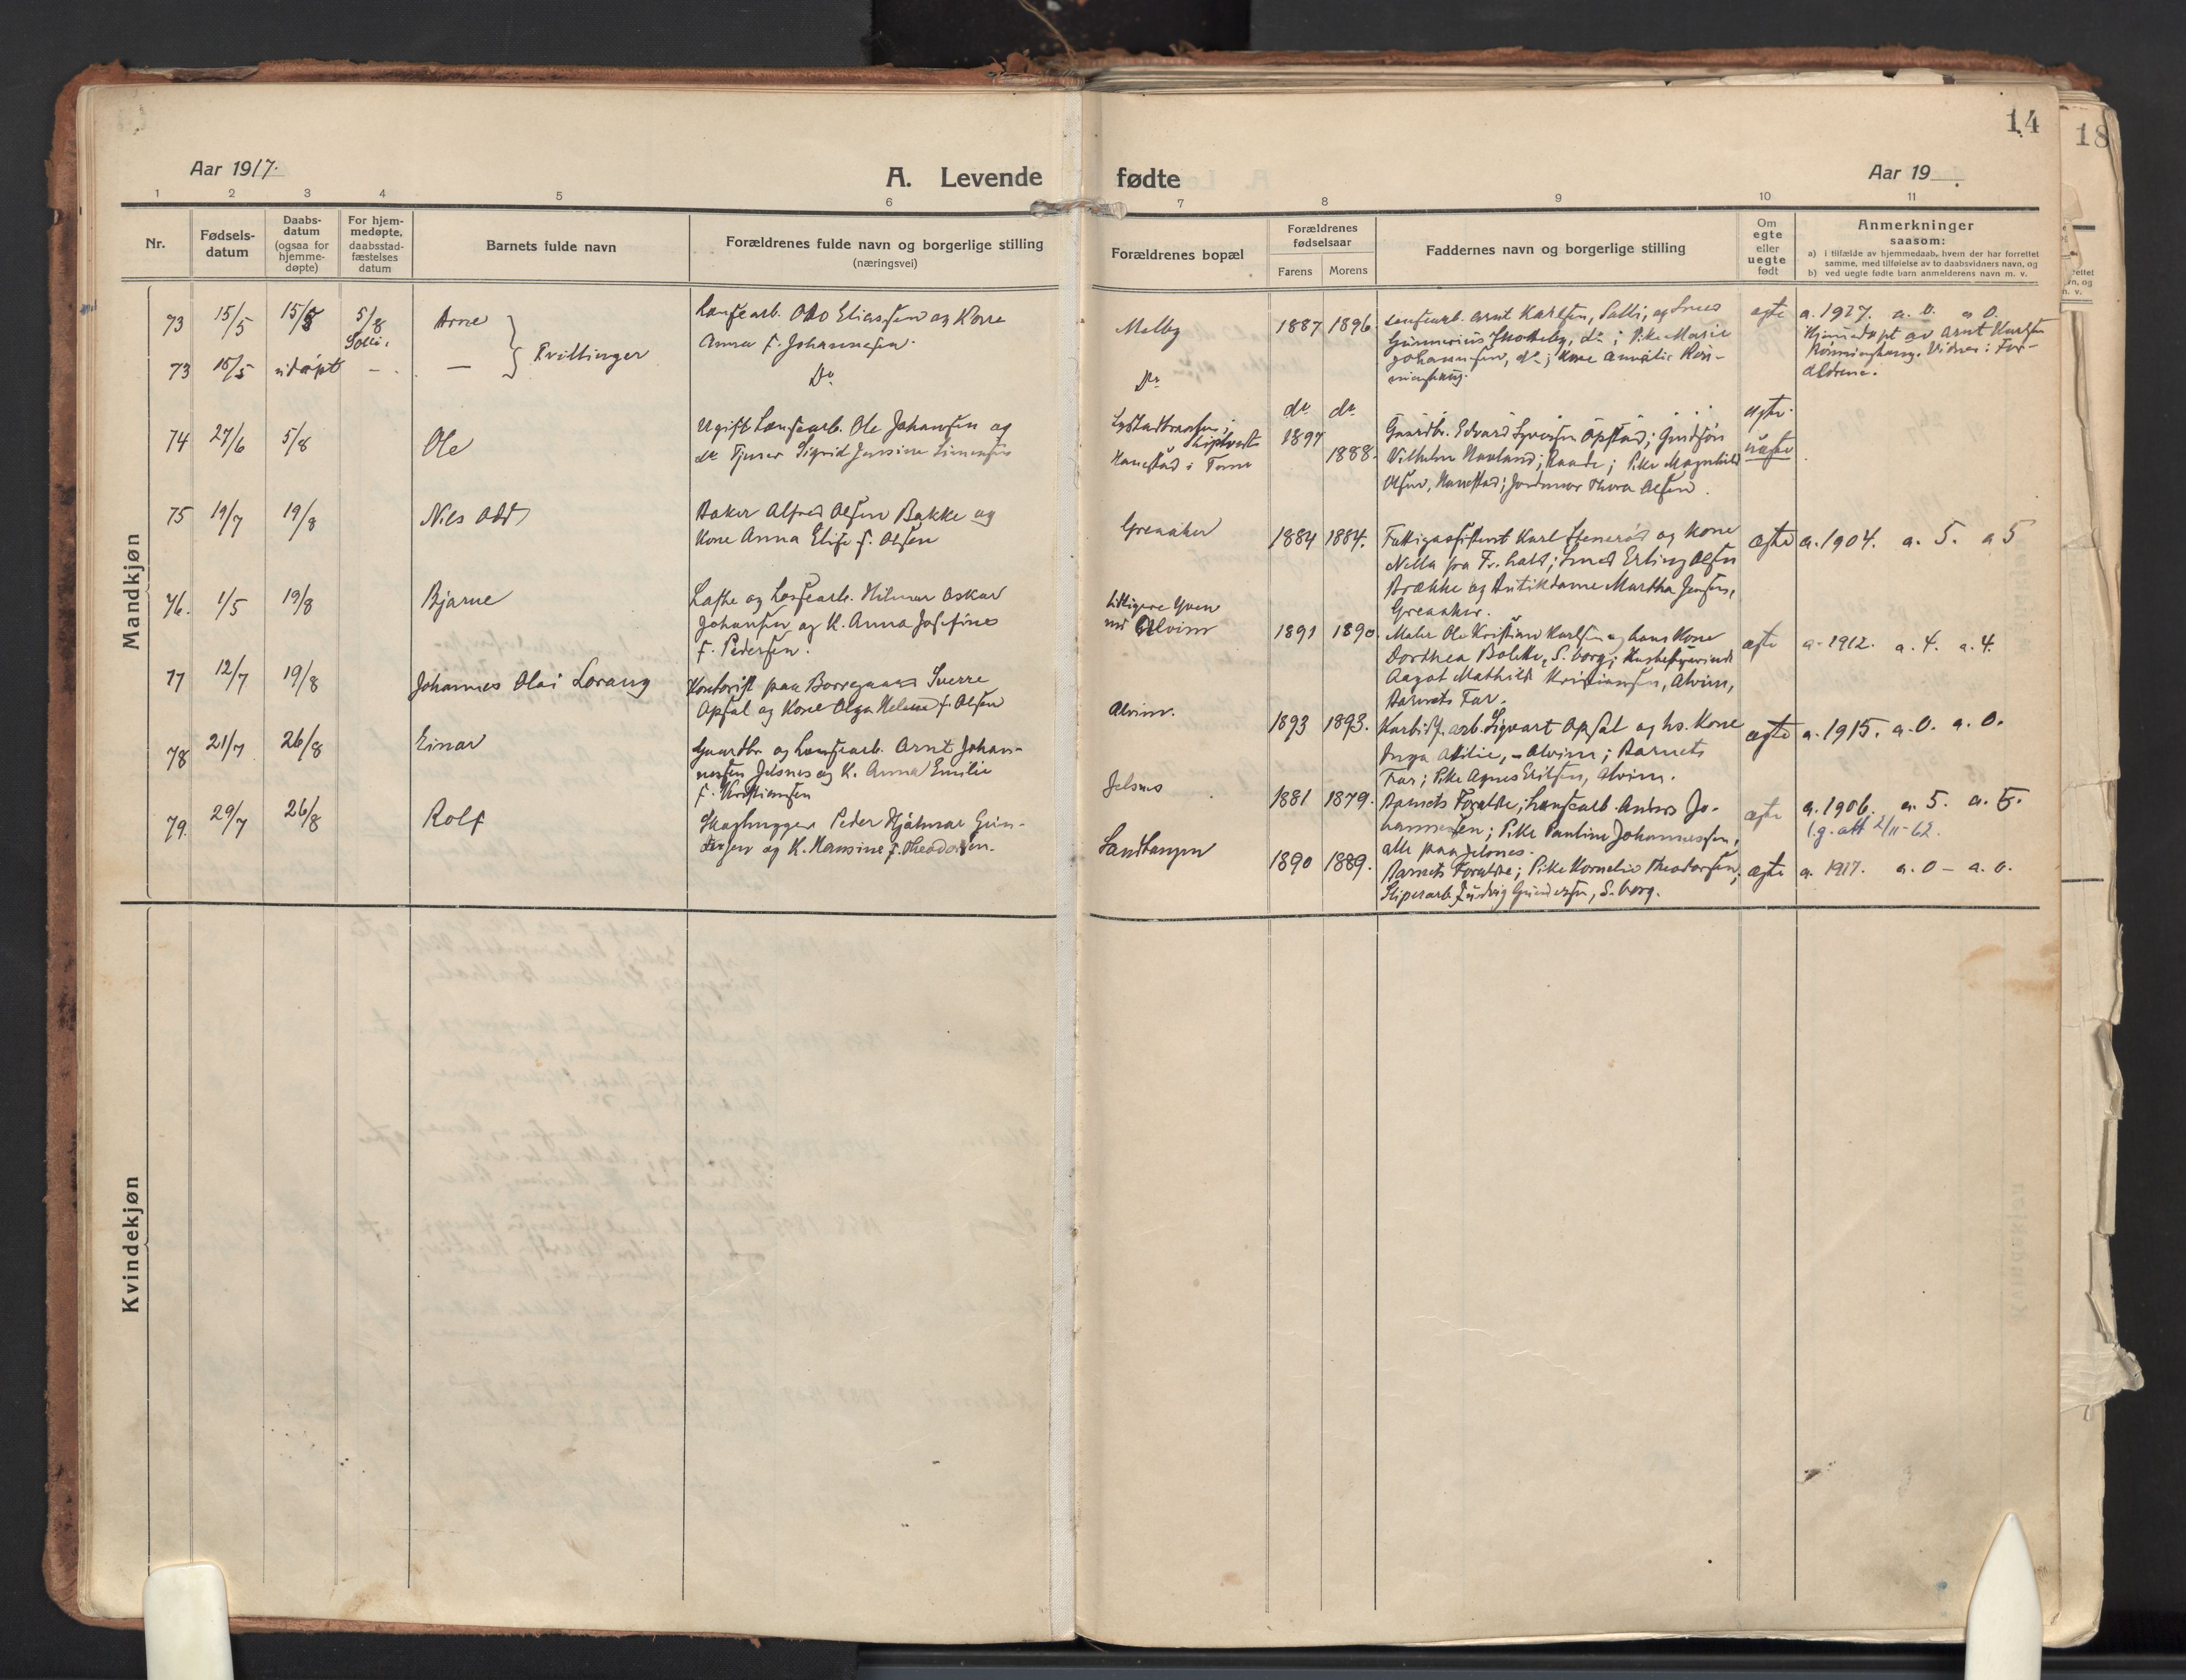 14
18
Aar 1917.
A. Levende
fødte
Aar 19
1 2 3 4 5 6 7 8 9 10 11
Nr.
Fødsels-
datum
Daabs-
datum
(ogsaa for
hjemme-
døpte)
For hjem-
medøpte,
daabsstad-
fæstelses
datum
Barnets fulde navn
Forældrenes fulde navn og borgerlige stilling
(næringsvei)
Forældrenes bopæl
Forældrenes
fødselsaar
Farens Morens
Faddernes navn og borgerlige stilling
Om
egte
eller
uegte
født
Anmerkninger
saasom:
a) i tilfælde av hjemmedaab, hvem der har forrettet
samme, med tilføielse av to daabsvidners navn, og
b) ved uegte fødte barn anmelderens navn m. v.
Mandkjøn
73 15/5 15/5 5/8 Arne
Otto Eliassen og Kone
Anna f. Johannesen.
Tvillinger
Melby 1887 1896.
Arnt Karlsen, Solli, og
Johannesen, do; Kone
egte a. 1927. a. 0. a 0.
Hjemmedøpt av Arnt Karlsen
Vidner: For-
ældrene.
73 15/5 udøpt - —
Do
Do do do
egte
74 27/6 5/8 Ole
Ugift Løsearb. Ole Johansen og
do Tjener Sigrid Jensine Simensen
Hanestad i Tune
1897
1888.
Gaardbr. Edvard Syversen Opstad;
Vilhelm Navland, Raade; Pike Magnhild
Olsen, Hanestad; Jordmor Thora Olsen.
uegte
75 19/7 19/8 Nils Odd
Baker Alfred Olsen Bakke og
Kone Anna Elise f. Olsen
Greaaker 1884 1884.
Fattigassistent Karl Stenerød og Kone
Nella fra Fr.hald; Smed Erling Olsen
Brække og Butikdame Martha Jensen,
Greaaker.
egte a. 1904. a. 5. a 5
76. 1/5 19/8 Bjarne
Laste og Lossearb. Hilmar Oskar
Johansen og K. Anna Josefine
f. Pedersen.
tidligere Yven
nu Alvim 1891 1890.
Maler Ole Kristian Karlsen og hans Kone
Dorthea Bolette, S.borg; Husbestyrerinde
Aagot Mathilde Kristiansen, Alvim,
Barnets Far.
egte a. 1912. a. 4. a. 4.
77 12/7 19/8 Johannes Olai Lorang
Kontorist paa Borregaard Sverre
Opsal og Kone Olga Helene f. Olsen
Alvim. 1893 1893.
Karbidf.arb. Sigvart Opsal og hs. Kone
Inga Otilie, - Alvim; Barnets
Far; Pike Agnes Eriksen, Alvim.
egte a. 1915. a. 0. a. 0.
78 21/7 26/8 Einar
Gaardbr. og Lensearb. Arnt Johan-
nessen Jelsnes og K. Anna Emilie
f. Kristiansen
Jelsnes 1881 1879.
Barnets Forældre; Lensearb. Anders Jo-
hannessen; Pike Pauline Johannessen,
alle paa Jelsnes.
egte a. 1906. a. 5. a. 5.
l.g. att 2/11-62.
79. 29/7 26/8 Rolf
Skoghugger Peder Hjalmar Gun-
dersen og K. Hansine f. Theodorsen.
Sandtangen 1890 1889.
Barnets Forældre; Pike Kornelia Theodorsen;
Sliperarb. Ludvig Gundersen, S.borg.
egte a. 1917. a. 0 - a. 0.
Kvindekjøn